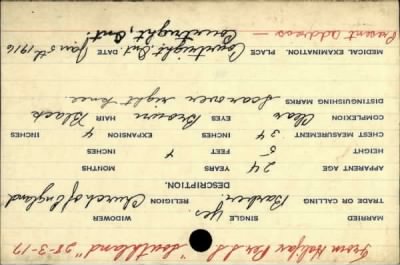 From Halifax Per S.S. "Southland" 28-3-17
MARRIED SINGLE Yes. WIDOWER
TRADE OR CALLING Barber. RELIGION Church of England
DESCRIPTION.
APPARENT AGE 24 YEARS MONTHS
HEIGHT 5 4 INCHES
CHEST MEASUREMENT 34 INCHES EXPANSION 4 INCHES
COMPLEXION Clear EYES Brown HAIR Black
DISTINGUISHING MARKS Scar over right knee.
MEDICAL EXAMINATION. PLACE Courtright, Ont. DATE Jan 5th 1916
Present address — Courtright, Ont.